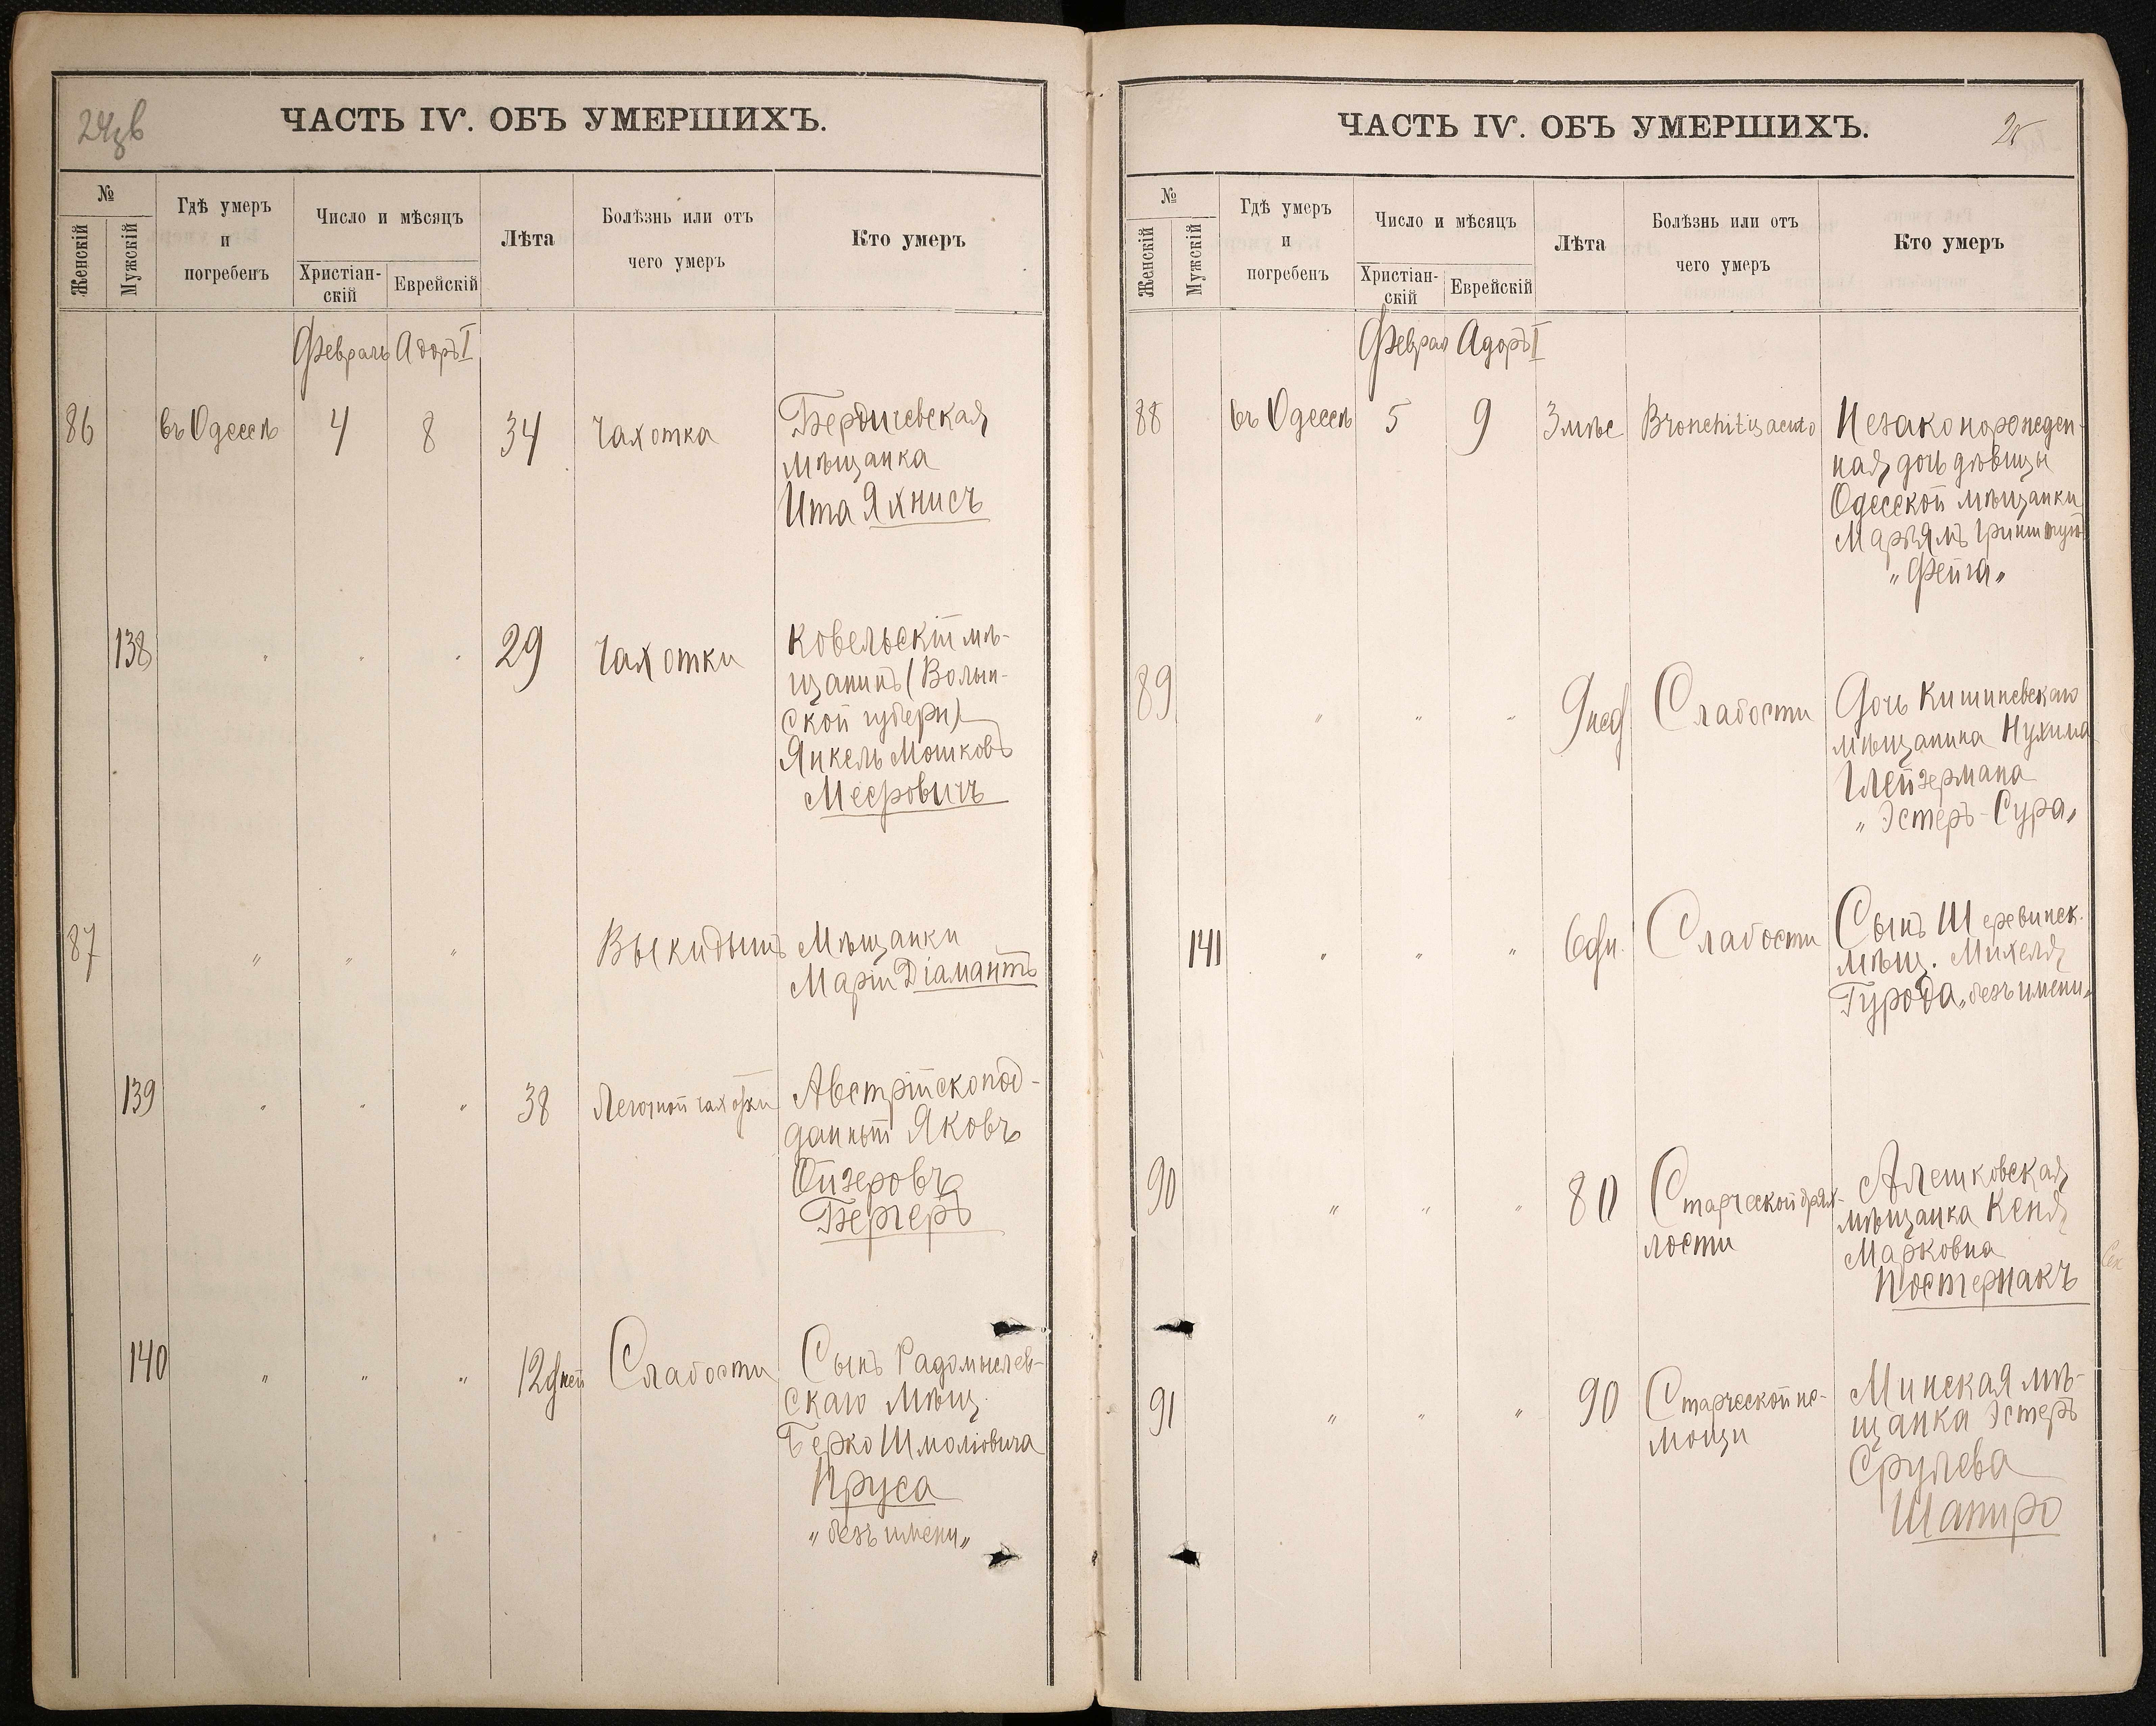 24зв
ЧАСТЬ IV. ОБЪ УМЕРШИХЪ.
№
Женскій
Мужскій
Гдѣ умеръ
и
погребенъ
Число и мѣсяцъ
Христіан-
скій
Еврейскій
Лѣта
Болѣзнь или отъ
чего умеръ
Кто умеръ
Февраль Адоръ I
86 въ Одессѣ 4 8 34 Чахотка Бердичевская
мѣщанка
Ита Яхнисъ
138 " " " 29 Чахотки Ковельскій мѣ-
щанинъ (Волын-
ской губерн)
Янкель Мошковъ
Меєровичъ
87 " " " Выкидышъ Мѣщанки
Маріи Діамантъ
139 " " " 38 Легочной чахотки Австрійскопод-
данный Яковъ
Ойзеровъ
Бергеръ
140 " " " 12 дней Слабости Сынъ Радомыслев-
скаго Мѣщ.
Берко Шмоліовича
Пруса
„безъ имени„
ЧАСТЬ IV. ОБЪ УМЕРШИХЪ.
25
№
Женскій
Мужскій
Гдѣ умеръ
и
погребенъ
Число и мѣсяцъ
Христіан-
скій
Еврейскій
Лѣта
Болѣзнь или отъ
чего умеръ
Кто умеръ
Феврал Адоръ I
88 въ Одессѣ 5 9 3 мѣс Bronchitis acuto Незаконорожден-
ная дочь дѣвицы
Одесской мѣщанки
Марьямъ
„Фейга„
89 " " " 9 нед Слабости Дочь Кишиневскаго
мѣщанина Нухима
Глейзермана
„Эстеръ-Сура„
141 " " " 6 дн. Слабости Сынъ Шеревинск.
мѣщ. Михеля
Гурода „безъ имени„
90 " " " 80 Старческой дрях-
лости
Алешковская
мѣщанка Кеня
Марковна
Постернакъ
91 " " " 90 Старческой не-
мощи
Минская мѣ-
щанка Эстеръ
Срулева
Шапиро